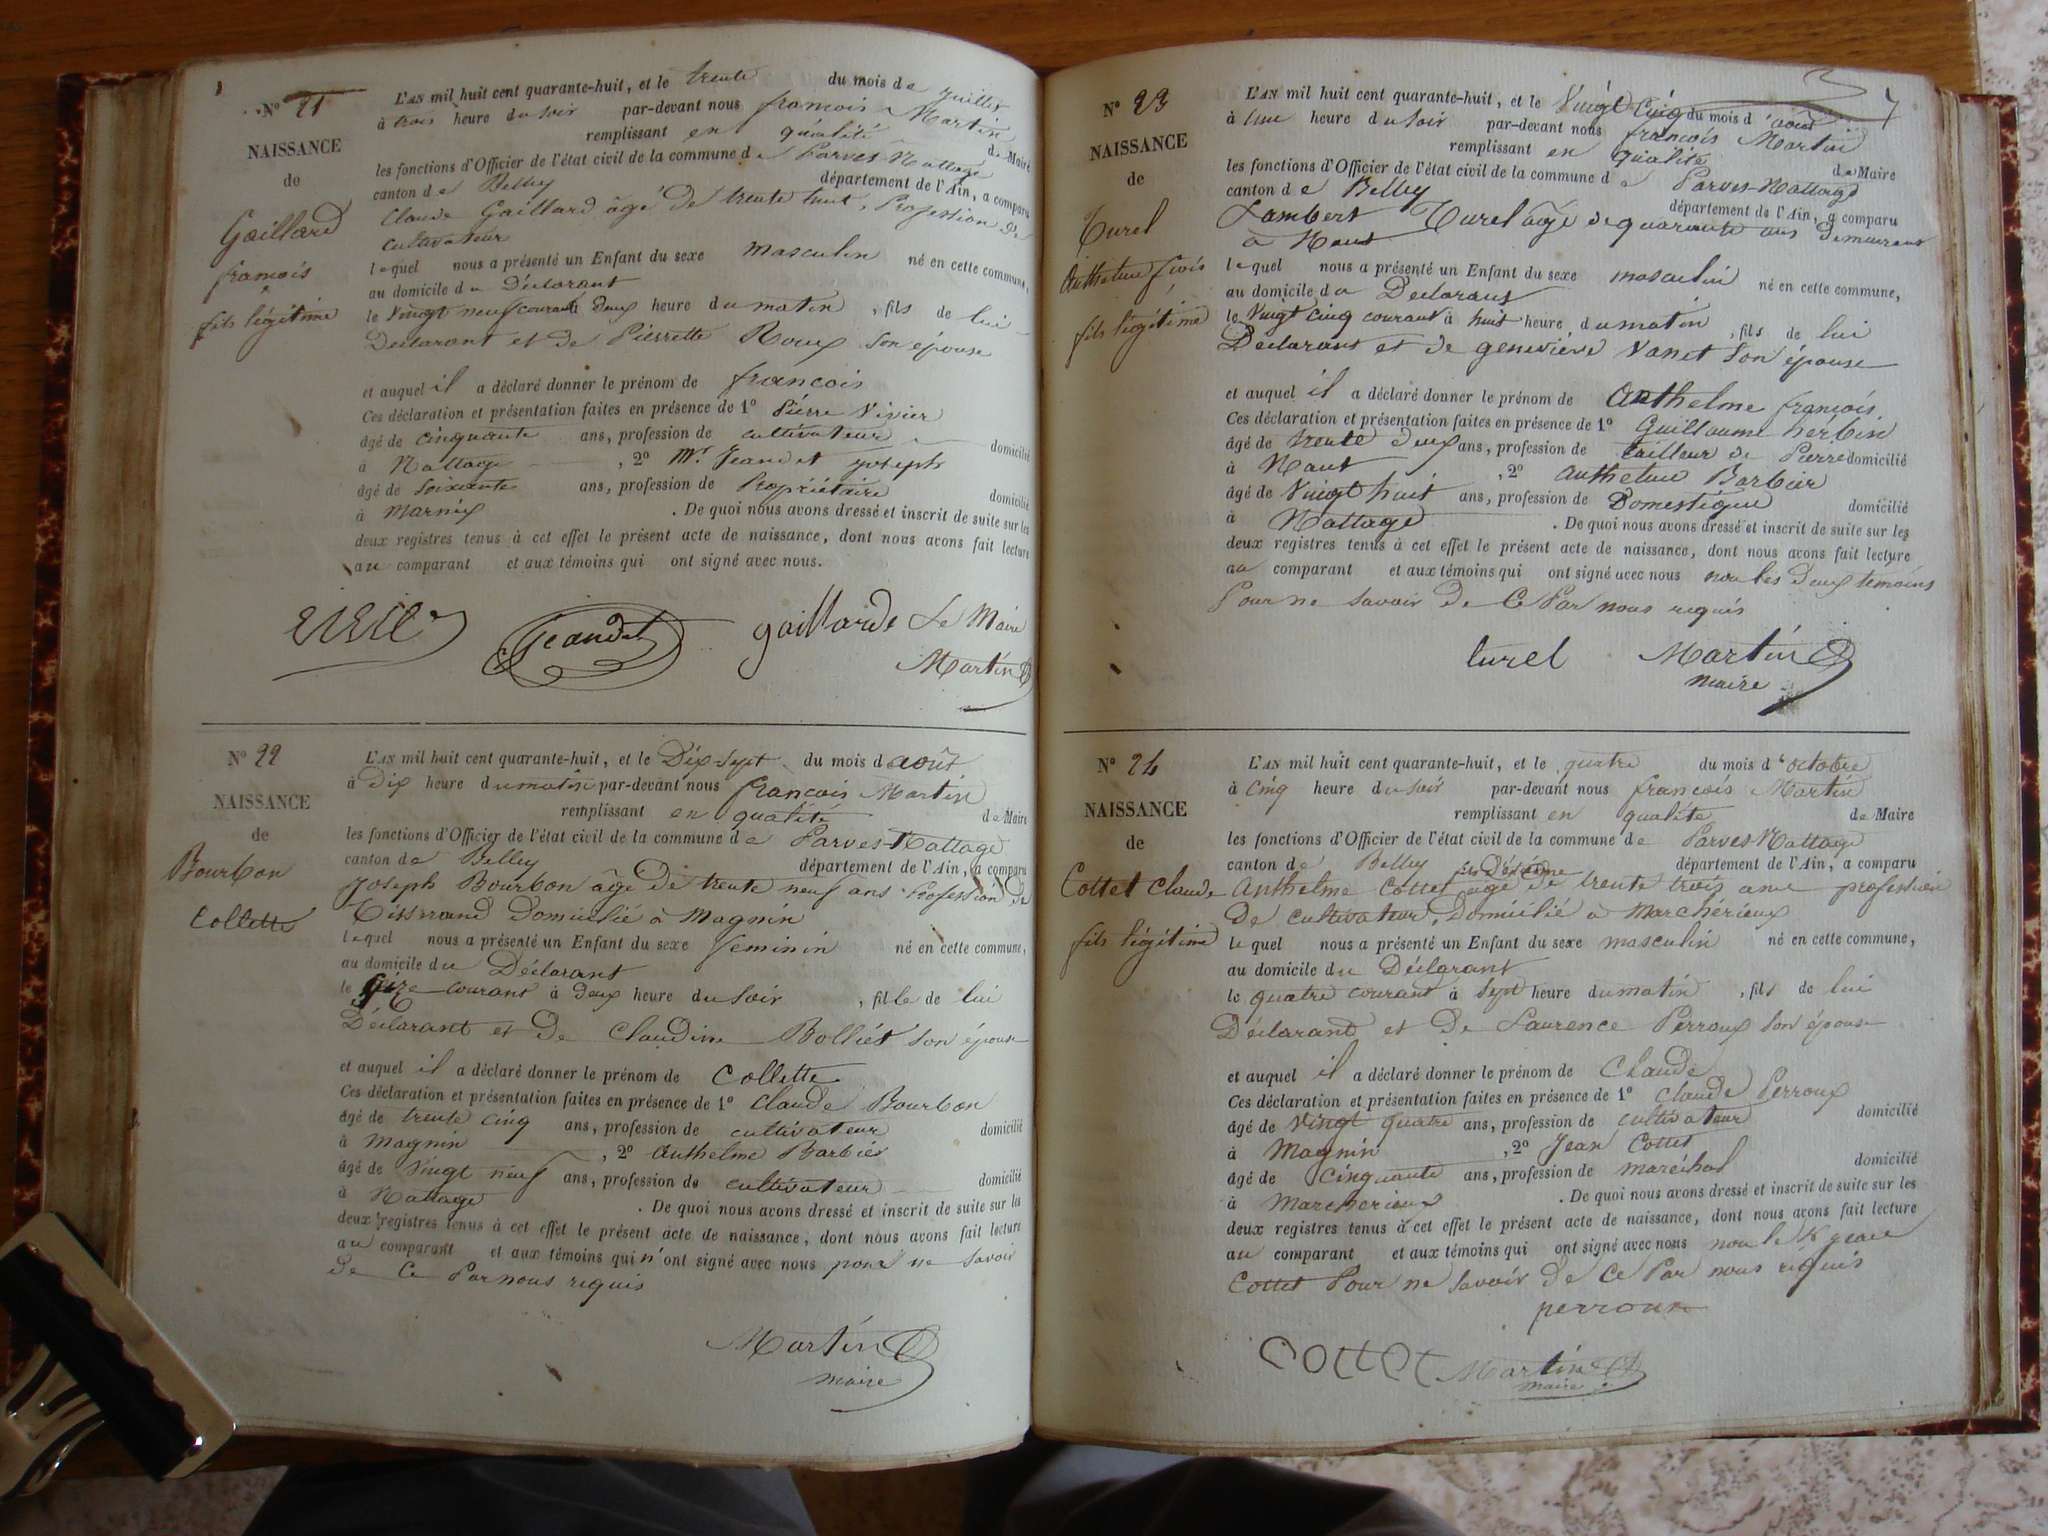 N° 21
NAISSANCE
de
Gaillard
françois
fils légitime
L'AN mil huit cent quarante-huit, et le trente du mois de juillet
à trois heure du soir par-devant nous francois Martin
remplissant en qualité de Maire
les fonctions d'Officier de l'état civil de la commune de Parves-Nattage
canton de Belley département de l'Ain, a comparu
Claude Gaillard âgé de trente huit, Profession de
cultivateur
lequel nous a présenté un Enfant du sexe masculin né en cette commune,
au domicile du Déclarant
le vingt neuf courant à deux heure du matin, fils de lui
Déclarant et de Pierrette Roux son épouse
et auquel il a déclaré donner le prénom de françois
Ces déclaration et présentation faites en présence de 1° Pierre Vivier
âgé de cinquante ans, profession de cultivateur domicilié
à Nattage, 2° Mr Jeandet joseph
âgé de soixante ans, profession de Propriétaire domicilié
à Marnix. De quoi nous avons dressé et inscrit de suite sur les
deux registres tenus à cet effet le présent acte de naissance, dont nous avons fait lecture
au comparant et aux témoins qui ont signé avec nous.
Jeandet gaillarde Le Maire
Martin
N° 22
NAISSANCE
de
Bourbon
Collette
L'AN mil huit cent quarante-huit, et le Dix-sept du mois d août
à Dix heure du matin par-devant nous francois Martin
remplissant en qualité de Maire
les fonctions d'Officier de l'état civil de la commune de Parves-Nattage
canton de Belley département de l'Ain, a comparu
Joseph Bourbon âgé de trente neuf ans Profession de
Tisserand Domicilié à Magnin
lequel nous a présenté un Enfant du sexe feminin né en cette commune,
au domicile du Déclarant
le courant à deux heure du soir, fille de lui
Déclarant et de Claudine Bolliet son épouse
et auquel il a déclaré donner le prénom de Collette
Ces déclaration et présentation faites en présence de 1° Claude Bourbon
âgé de trente cinq ans, profession de cultivateur domicilié
à Magnin, 2° Anthelme Barbier
âgé de vingt neuf ans, profession de cultivateur domicilié
à Nattage. De quoi nous avons dressé et inscrit de suite sur les
deux registres tenus à cet effet le présent acte de naissance, dont nous avons fait lecture
au comparant et aux témoins qui n'ont signé avec nous pour ne savoir
de Ce Par nous requis
Martin
maire
7
N° 23
NAISSANCE
de
Turel
Anthelme fçois
fils légitime
L'AN mil huit cent quarante-huit, et le Vingt cinq du mois d'août
à une heure du soir par-devant nous francois Martin
remplissant en qualité de Maire
les fonctions d'Officier de l'état civil de la commune de Parves-Nattage
canton de Belley département de l'Ain, a comparu
Lambert Turel âgé de quarante ans demeurant
à Nant
lequel nous a présenté un Enfant du sexe masculin né en cette commune,
au domicile du Déclarant
le Vingt cinq courant à huit heure du matin, fils de lui
Déclarant et de geneviève Vanet son épouse
et auquel il a déclaré donner le prénom de Anthelme françois.
Ces déclaration et présentation faites en présence de 1° Guillaume herbin
âgé de trente deux ans, profession de tailleur de Pierre domicilié
à Nant, 2° Anthelme Barbier
âgé de Vingt huit ans, profession de Domestique domicilié
à Nattage. De quoi nous avons dressé et inscrit de suite sur les
deux registres tenus à cet effet le présent acte de naissance, dont nous avons fait lecture
au comparant et aux témoins qui ont signé avec nous non les deux témoins
Pour ne savoir de Ce Par nous requis
turel Martin
maire
N° 24
NAISSANCE
de
Cottet Claude
fils légitime
L'AN mil huit cent quarante-huit, et le quatre du mois d'octobre
à cinq heure du soir par-devant nous francois Martin
remplissant en qualité de Maire
les fonctions d'Officier de l'état civil de la commune de Parves-Nattage
canton de Belley département de l'Ain, a comparu
Anthelme Cottet âgé de trente trois ans profession
De cultivateur, Domicilié à Marchérieux
lequel nous a présenté un Enfant du sexe masculin né en cette commune,
au domicile du Déclarant
le quatre courant à sept heure du matin, fils de lui
Déclarant et de Laurence Perroux son épouse
et auquel il a déclaré donner le prénom de Claude
Ces déclaration et présentation faites en présence de 1° Claude Perroux
âgé de vingt quatre ans, profession de cultivateur domicilié
à Magnin, 2° Jean Cottet
âgé de cinquante ans, profession de maréchal domicilié
à Marcherieux. De quoi nous avons dressé et inscrit de suite sur les
deux registres tenus à cet effet le présent acte de naissance, dont nous avons fait lecture
au comparant et aux témoins qui ont signé avec nous non le
Cottet Pour ne savoir de Ce Par nous requis
perroux
Cottet Martin
maire